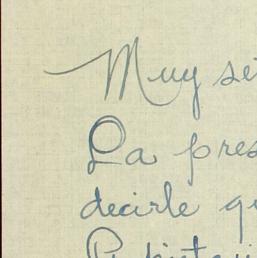 Muy se
La pres
decirle q